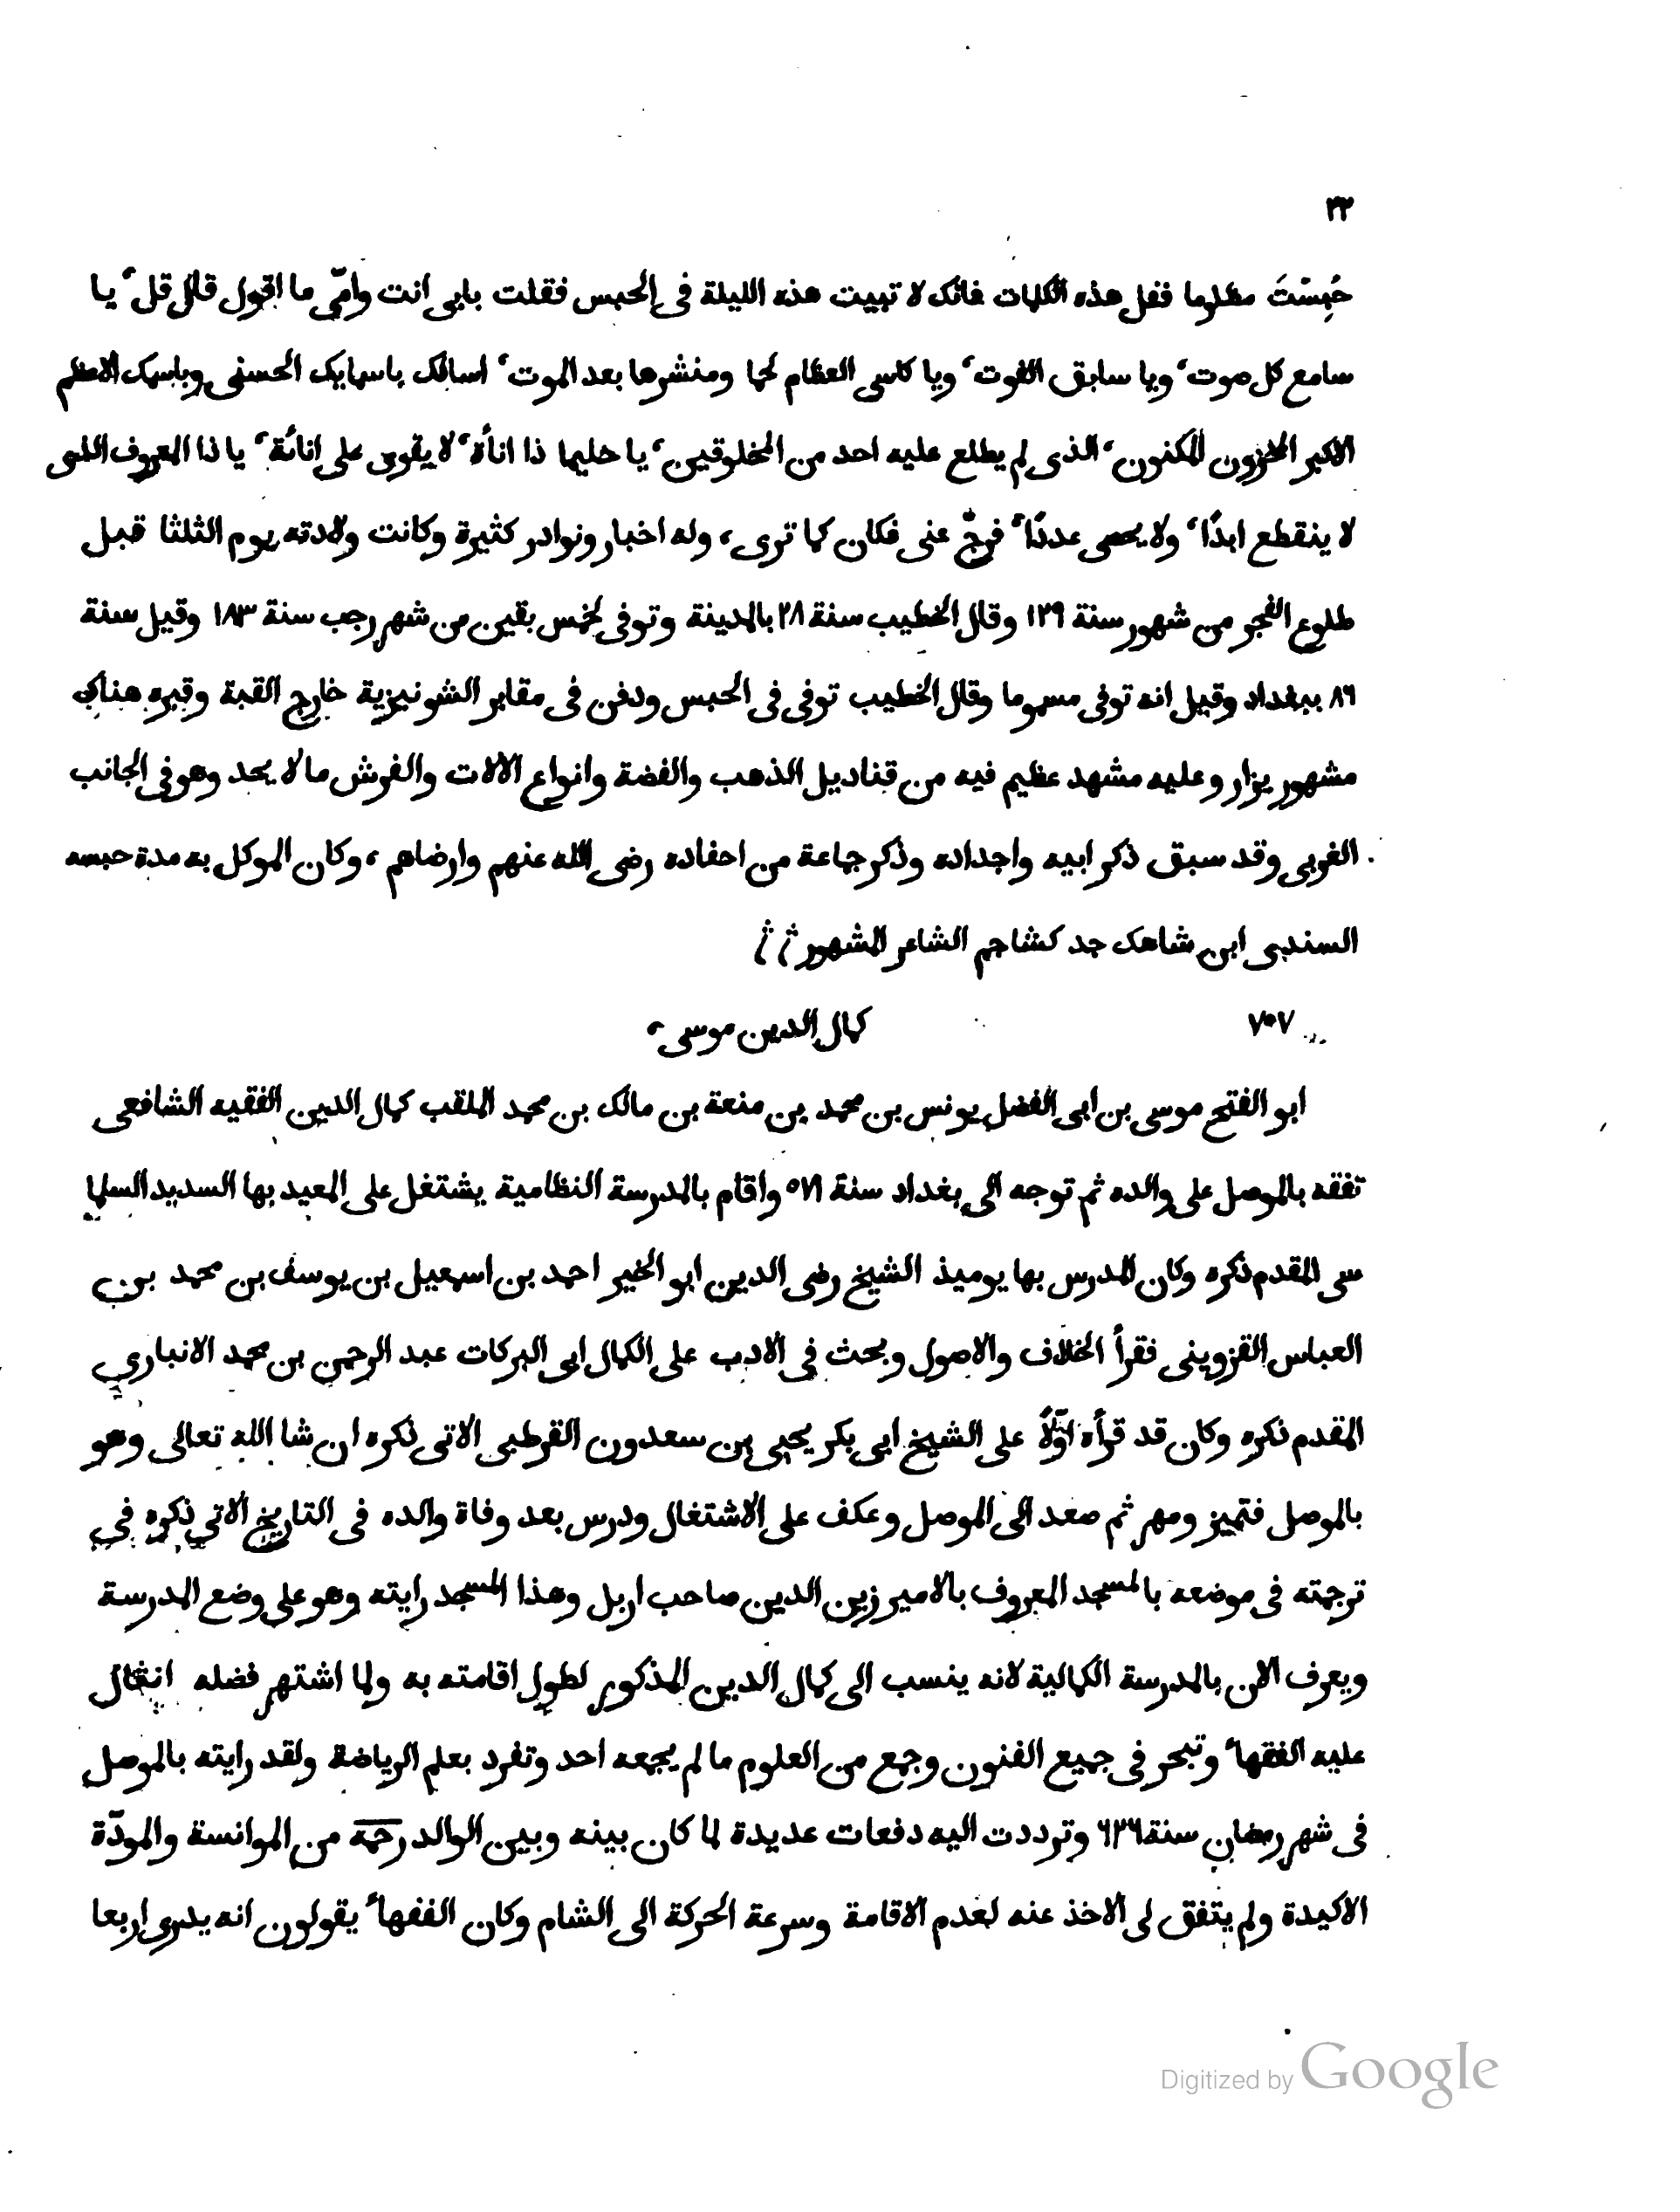 ٣٢
حُبِسْتَ مظلوما فقل هذه الكلمات فانك لا تبيت هذه الليلة فى الحبس فقلت بابى انت وامّى ما اقول قال قل، يا
سامع كل صوت، ويا سابق الفوت، ويا كاسى العظام لحما ومنشرها بعد الموت، اسالك باسمايك الحسنى وباسمك الاعظم
الاكبر المخزون المكنون، الذى لم يطلع عليه احد من المخلوقين، يا حليما ذا اناأة، لا يقوى على اناتة، يا ذا المعروف الذى
لا ينقطع ابدًا، ولا يحصى عددًا، فرجّ عنى فكان كما ترى، وله اخبار ونوادر كثيرة وكانت ولادته يوم الثلثا قبل
طلوع الفجر من شهور سنة ١٢٩ وقال الخطيب سنة ٢٨ بالمدينة وتوفى لخمس بقين من شهر رجب سنة ١٨٣ وقيل سنة
٨٦ ببغداد وقيل انه توفى مسموما وقال الخطيب توفى فى الحبس ودفن فى مقابر الشونيزية خارج القبة وقبره هناك
مشهور يزار وعليه مشهد عظيم فيه من قناديل الذهب والفضة وانواع الالات والفرش ما لا يحد وهو فى الجانب
الغربى وقد سبق ذكر ابيه واجداده وذكر جماعة من احفاده رضى الله عنهم وارضاهم، وكان الموكل به مدة حبسه
السندى ابن شاهك جد كشاجم الشاعر المشهور
٧٥٧ كمال الدين موسى،
ابو الفتح موسى بن ابى الفضل يونس بن محمد بن منعة بن مالك بن محمد الملقب كمال الدين الفقيه الشافعى
تفقه بالموصل على والده ثم توجه الى بغداد سنة ٥٧١ واقام بالمدرسة النظامية يشتغل على المعيد بها السديد السلما
سى المقدم ذكره وكان المدرس بها يوميذ الشيخ رضى الدين ابو الخير احمد بن اسمعيل بن يوسف بن محمد بن
العباس القزوينى فقرأ الخلاف والاصول وبحث فى الادب على الكمال ابى البركات عبد الرحمن بن محمد الانبارى
المقدم ذكره وكان قد قرأه اوّلًا على الشيخ ابى بكر يحيى بن سعدون القرطبى الاتى ذكره ان شا الله تعالى وهو
بالموصل فتميز ومهر ثم صعد الى الموصل وعكف على الاشتغال ودرس بعد وفاة والده فى التاريخ الاتى ذكره فى
ترجمته فى موضعه بالمسجد المعروف بالامير زين الدين صاحب اربل وهذا المسجد رايته وهو على وضع المدرسة
ويعرف الان بالمدرسة الكمالية لانه ينسب الى كمال الدين المذكور لطول اقامته به ولما اشتهر فضله انثال
عليه الفقهاء وتبحر فى جميع الفنون وجمع من العلوم ما لم يجمعه احد وتفرد بعلم الرياضة ولقد رايته بالموصل
فى شهر رمضان سنة ٦٢٦ وترددت اليه دفعات عديدة لما كان بينه وبين الوالد رحمه من الموانسة والمودّة
الاكيدة ولم يتفق لى الاخذ عنه لعدم الاقامة وسرعة الحركة الى الشام وكان الفقهاء يقولون انه يدرى اربعا
Digitized by Google